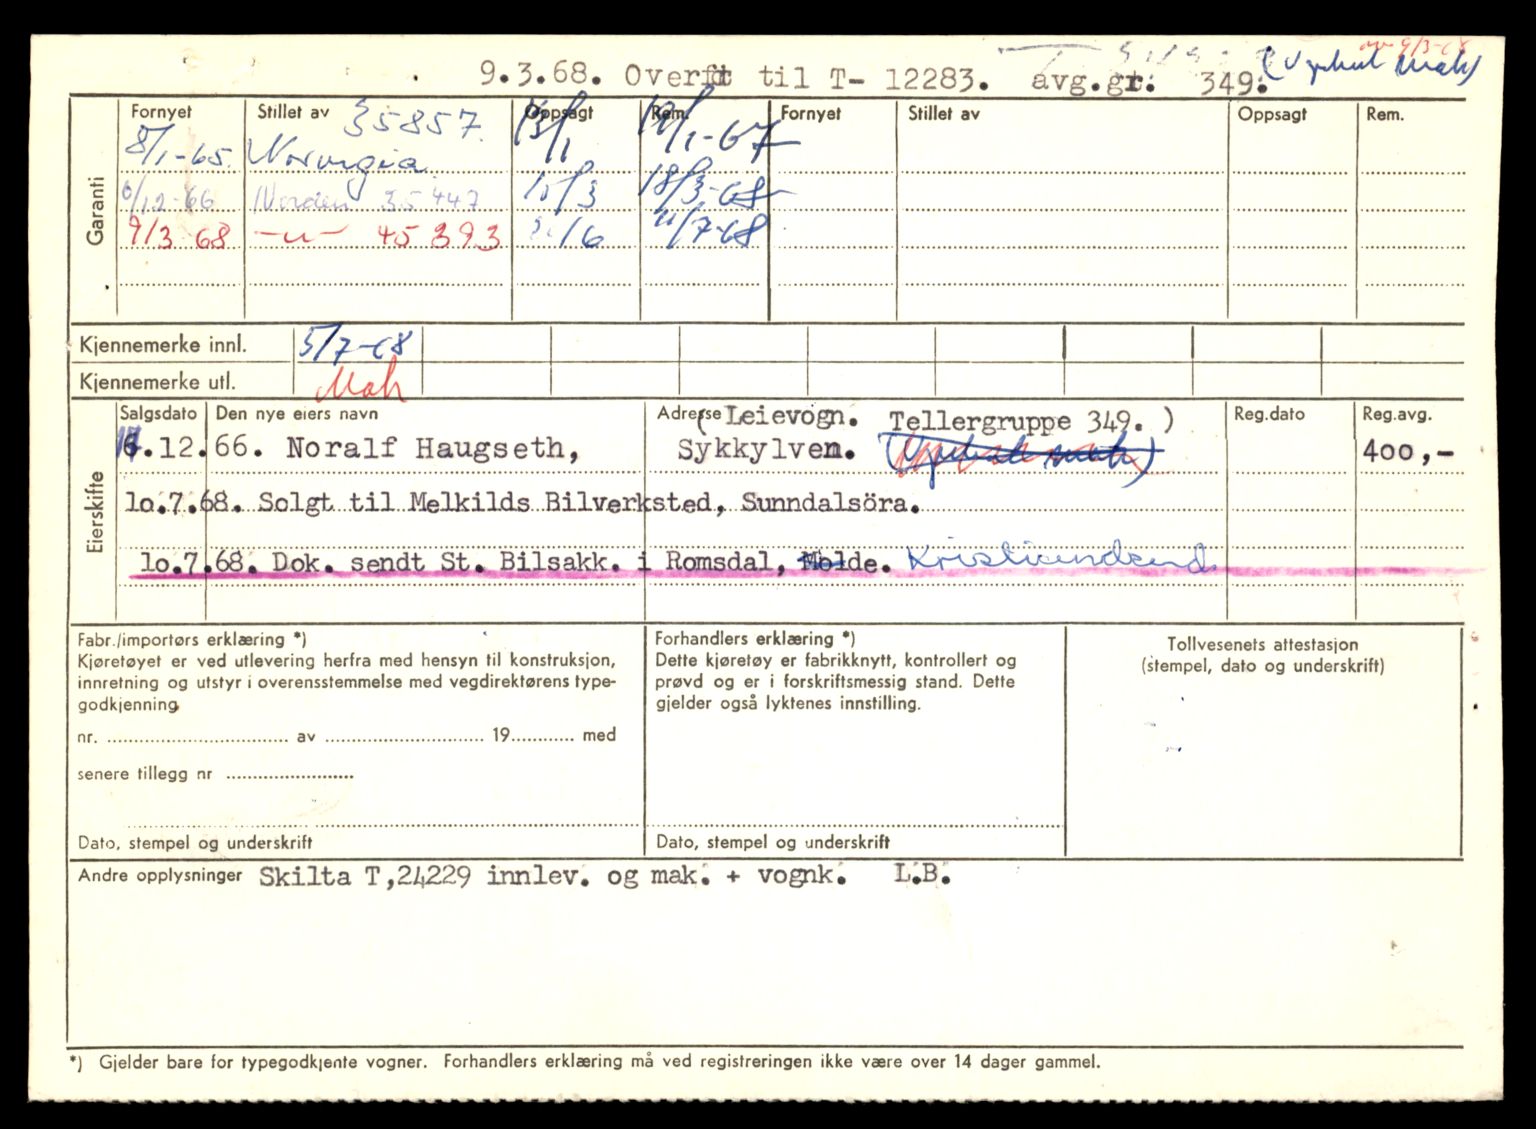 9.3.68. Overført til T- 12283. avg.gr: 349.
Fornyet Stillet av 35857 Oppsagt Rem. Fornyet Stillet av Oppsagt Rem.
Garanti
8/1-65. Norvegia 13/1 19/1-67
6/12-66 Norden 35447 15/3 18/3-68
9/3 68 —"— 45393 /6 11/7-68
Kjennemerke innl. 5/7-68
Kjennemerke utl. Mah
Eierskifte
Salgsdato Den nye eiers navn Adresse (Leievogn. Tellergruppe 349. ) Reg.dato Reg.avg.
.12.66. Noralf Haugseth, Sykkylven. 400,-
lo.7.68. Solgt til Melkilds Bilverksted, Sunndalsöra.
lo.7.68. Dok. sendt St. Bilsakk. i Romsdal, Molde. Kristiansund
Fabr./importørs erklæring *)
Kjøretøyet er ved utlevering herfra med hensyn til konstruksjon,
innretning og utstyr i overensstemmelse med vegdirektørens type-
godkjenning
nr. .................... av .................... 19.......... med
senere tillegg nr ....................
Dato, stempel og underskrift
Forhandlers erklæring *)
Dette kjøretøy er fabrikknytt, kontrollert og
prøvd og er i forskriftsmessig stand. Dette
gjelder også lyktenes innstilling.
Dato, stempel og underskrift
Tollvesenets attestasjon
(stempel, dato og underskrift)
Andre opplysninger Skilta T,24229 innlev. og mak. + vognk. L.B.
*) Gjelder bare for typegodkjente vogner. Forhandlers erklæring må ved registreringen ikke være over 14 dager gammel.